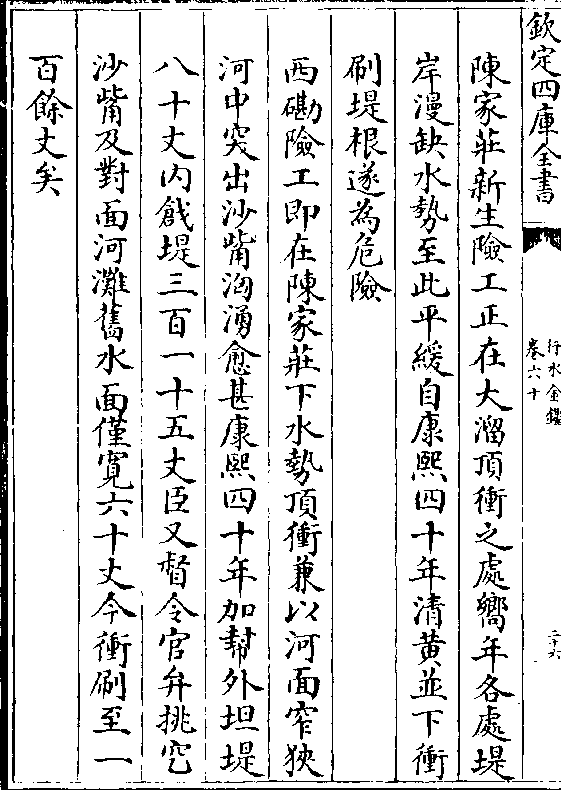 欽定四庫全書
行水金鑑
卷六十
二十六
陳家莊新生險工正在大溜頂衝之處嚮年各處堤
岸漫缺水勢至此平緩自康熙四十年清黃並下衝
刷堤根遂為危險
西磡險工即在陳家莊下水勢頂衝兼以河面窄狹
河中突出沙觜洶湧愈甚康熙四十年加幫外坦堤
八十丈内戧堤三百一十五丈臣又督令官弁挑空
沙觜及對面河灘舊水面僅寛六十丈今衝刷至一
百餘丈矣